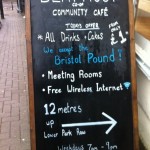 COMMUNITY CAFÉ
TODAYS OFFER
All Drinks + Cakes
We accept the
Bristol Pound!
• Meeting Rooms
• Free Wireless Internet
12 metres
up
Lower Park Row
Weekdays 9am - 9pm